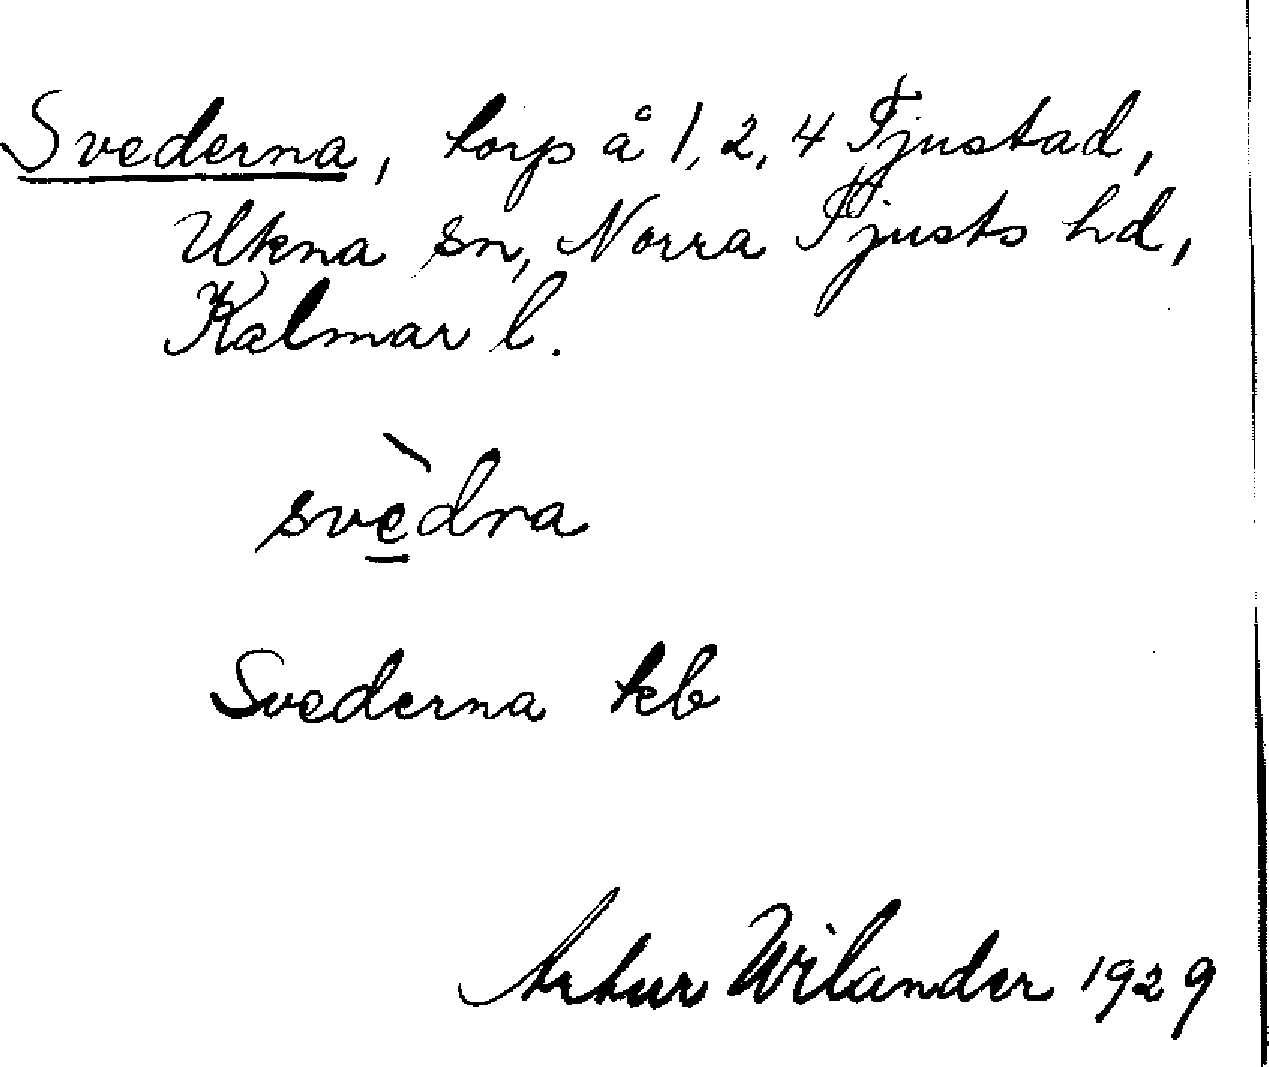 Svederna, torp å 1, 2, 4 Tjustad,
Ukna sn, Norra Tjusts hd,
Kalmar l.
svèdna
Svederna kb
Artur Wilander 1929